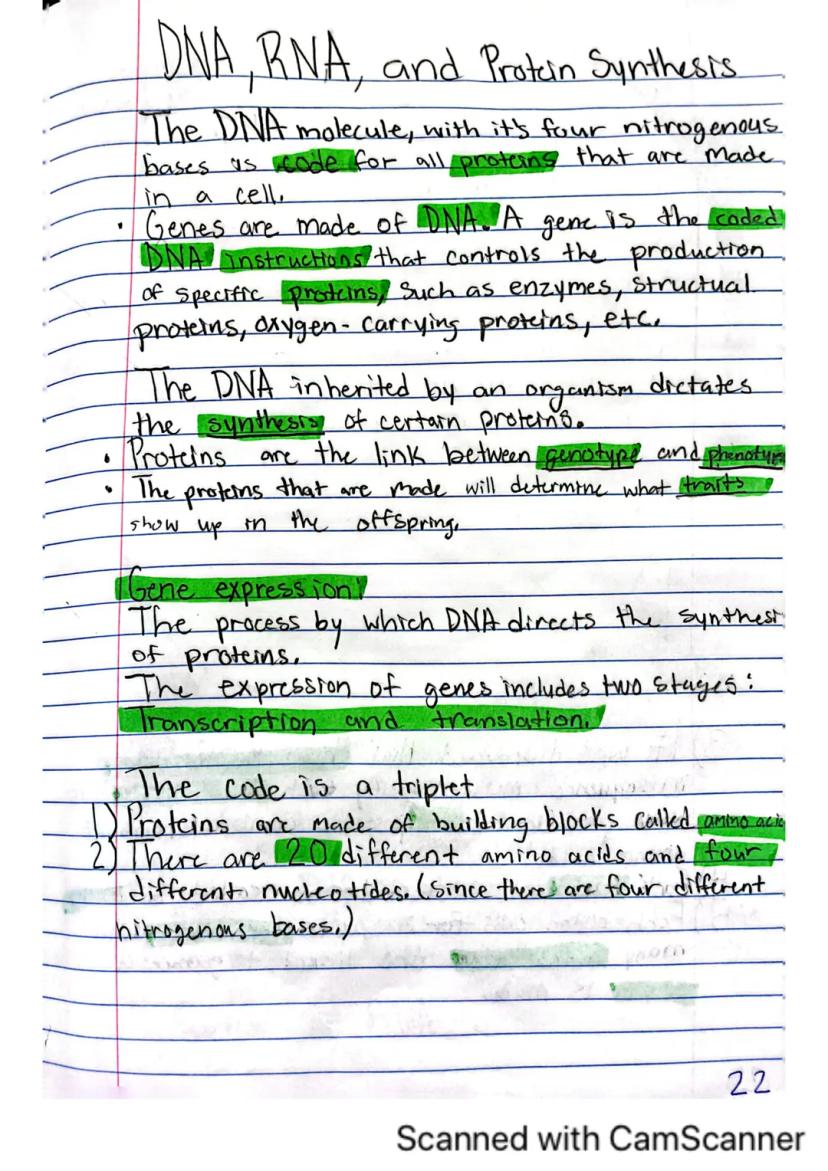 DNA, RNA, and Protein Synthesis
The DNA molecule, with it's four nitrogenous
bases is code for all proteins that are made
in a cell.
• Genes are made of DNA. A gene is the coded
DNA instructions that controls the production
of specific proteins, such as enzymes, structual
proteins, oxygen-carrying proteins, etc.
The DNA inherited by an organism dictates
the synthesis of certain proteins.
• Proteins are the link between genotype and phenotype
• The proteins that are made will determine what traits
show up in the offspring.
Gene expression!
The process by which DNA directs the synthesi
of proteins.
The expression of genes includes two stages:
Transcription and translation.
The code is a triplet
1) Proteins are made of building blocks called amino acid
2) There are 20 different amino acids and four
different nucleotides. (since there are four different
nitrogenous bases.)
22
Scanned with CamScanner